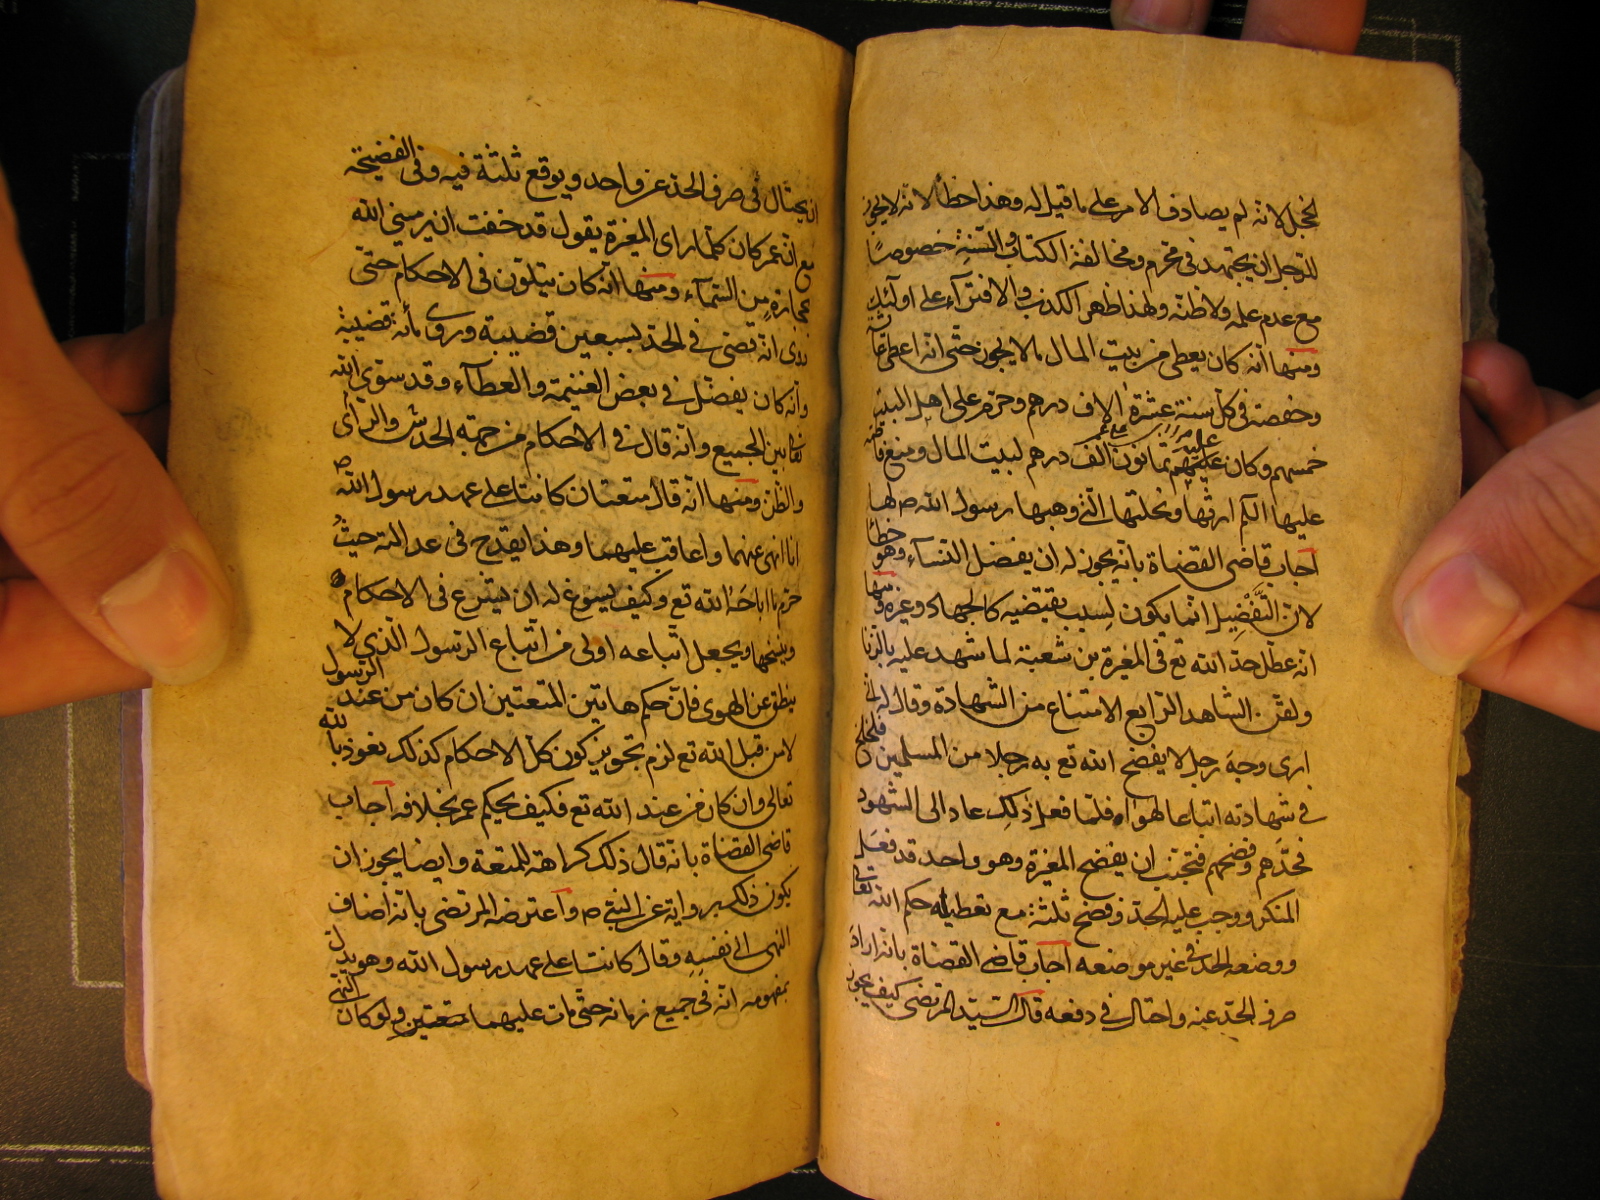 لخجل لانه لم يصادف الامر على ما قيل له وهذا خطأ لانه لا يجوز
للرجل ان يجتهد فى محرم ومخالفة الكتاب والسنة خصوصًا
مع عدم علمه ولا ظنه ولهذا ظهر الكذب والافترآء على اولئك
ومنها انه كان يعطى من بيت المال ما لا يجوز حتى انه اعطى
وحفصة فى كل سنة عشرة الاف درهم وحرم على اهل البيت
خمسهم وكان عليه ثمانون الف درهم لبيت المال ومنع فاطمة
عليها السلم ارثها ونحلتها التى وهبها رسول الله ص لها
اجاب قاضى القضاة بانه يجوز له ان يفضل النساء وهو خطأ
لان التفضيل انما يكون لسبب يقتضيه كالجهاد وغيره ومنها
انه عطل حد الله تع فى المغيرة بن شعبة لما شهد عليه بالزنا
ولقن الشاهد الرابع الامتناع من الشهادة وقال له انى
ارى وجه رجل لا يفضح الله تع به رجلا من المسلمين فلجلج
فى شهادته اتباعا لهواه فلما فعل ذلك عاد الى الشهود
فحدهم وفضحهم فتجنب ان يفضح المغيرة وهو واحد قد فعل
المنكر ووجب عليه الحد وفضح ثلثة مع تعطيله حكم الله تعالى
ووضعه الحد فى غير موضعه اجاب قاضى القضاة بانه اراد
صرف الحد عنه واحتال فى دفعه قال السيد المرتضى كيف يجوز
ان يحتال فى صرف الحد عن واحد ويوقع ثلثة فيه وفى الفضيحة
مع ان عمر كان كلما راى المغيرة يقول قد خفت ان يرمينى الله
بحجارة من السمآء ومنها انه كان يتلون فى الاحكام حتى
روى انه قضى فى الحد بسبعين قضيبة وروى مأة قضيبة
وانه كان يفضل فى بعض الغنيمة والعطآء وقد سوى الله
تعا بين الجميع وانه قال فى الاحكام من جهة الحدس والرأى
والظن ومنها انه قال متعتان كانتا على عهد رسول الله ص
انا انهى عنهما واعاقب عليهما وهذا يقدح فى عدالته حيث
حرم ما اباحه الله تع وكيف يسوغ له ان يشرع فى الاحكام
وينسخها ويجعل اتباعه اولى من اتباع الرسول الذى لا
ينطق عن الهوى فان حكم هاتين المتعتين ان كان من عند الرسول
لا من قبل الله تع لزم تجويز كون كل الاحكام كذلك نعوذ بالله
تعالى وان كان من عند الله تع فكيف يحكم عمر بخلافه اجاب
قاضى القضاة بانه قال ذلك كراهة للمتعة وايضا يجوز ان
يكون ذلك برواية عن النبى ص واعترضه المرتضى بانه اضاف
النهى الى نفسه وقال كانتا على عهد رسول الله وهو يدل
بمفهومه انه فى جميع زمانه حتى مات عليهما متعتين ولو كان النهى